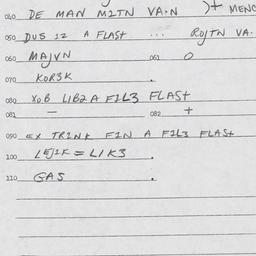 040 DE MAN MITN VA.N )+ MENC
050 DUS 12 A FLASt ... ROJTN VA.
060 MAJVN 061 O
070 KOR3K .
080 XOB LIB2A FIL3 FLASt
081 — 082 +
090 EX TRINK FIN A FIL3 FLASt
100 LEJIK = LIK3 .
110 GAS .